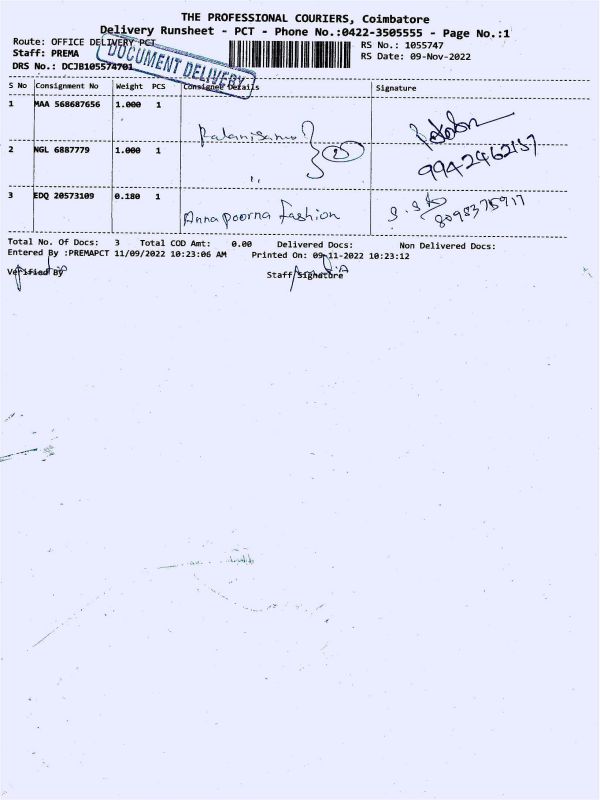 THE PROFESSIONAL COURIERS, Coimbatore
Delivery Runsheet - PCT - Phone No.:0422-3505555 - Page No.:1
Route: OFFICE DELIVERY PCT
RS No.: 1055747
Staff: PREMA
RS Date: 09-Nov-2022
DRS No.: DCJB105574701
DOCUMENT DELIVERY
S No Consignment No Weight PCS Consignee Details Signature
1 MAA 568687656 1.000 1
Palanisamy
2 NGL 6887779 1.000 1
2
9942462157
3 EDQ 20573109 0.180 1
Annapoorna fashion
8098375917
Total No. Of Docs: 3 Total COD Amt: 0.00 Delivered Docs: Non Delivered Docs:
Entered By :PREMAPCT 11/09/2022 10:23:06 AM Printed On: 09-11-2022 10:23:12
Verified By
Staff Signature